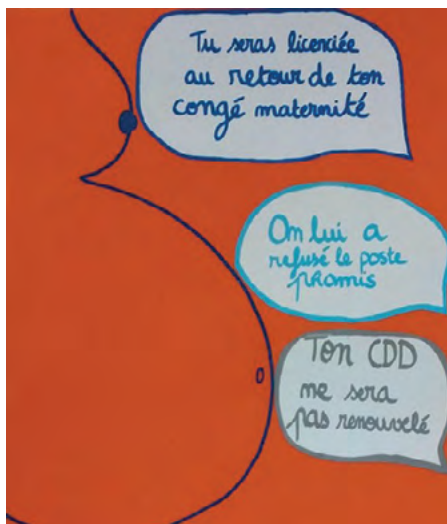 Tu seras licenciée
au retour de ton
congé maternité
On lui a
refusé le poste
promis
Ton CDD
ne sera
pas renouvelé